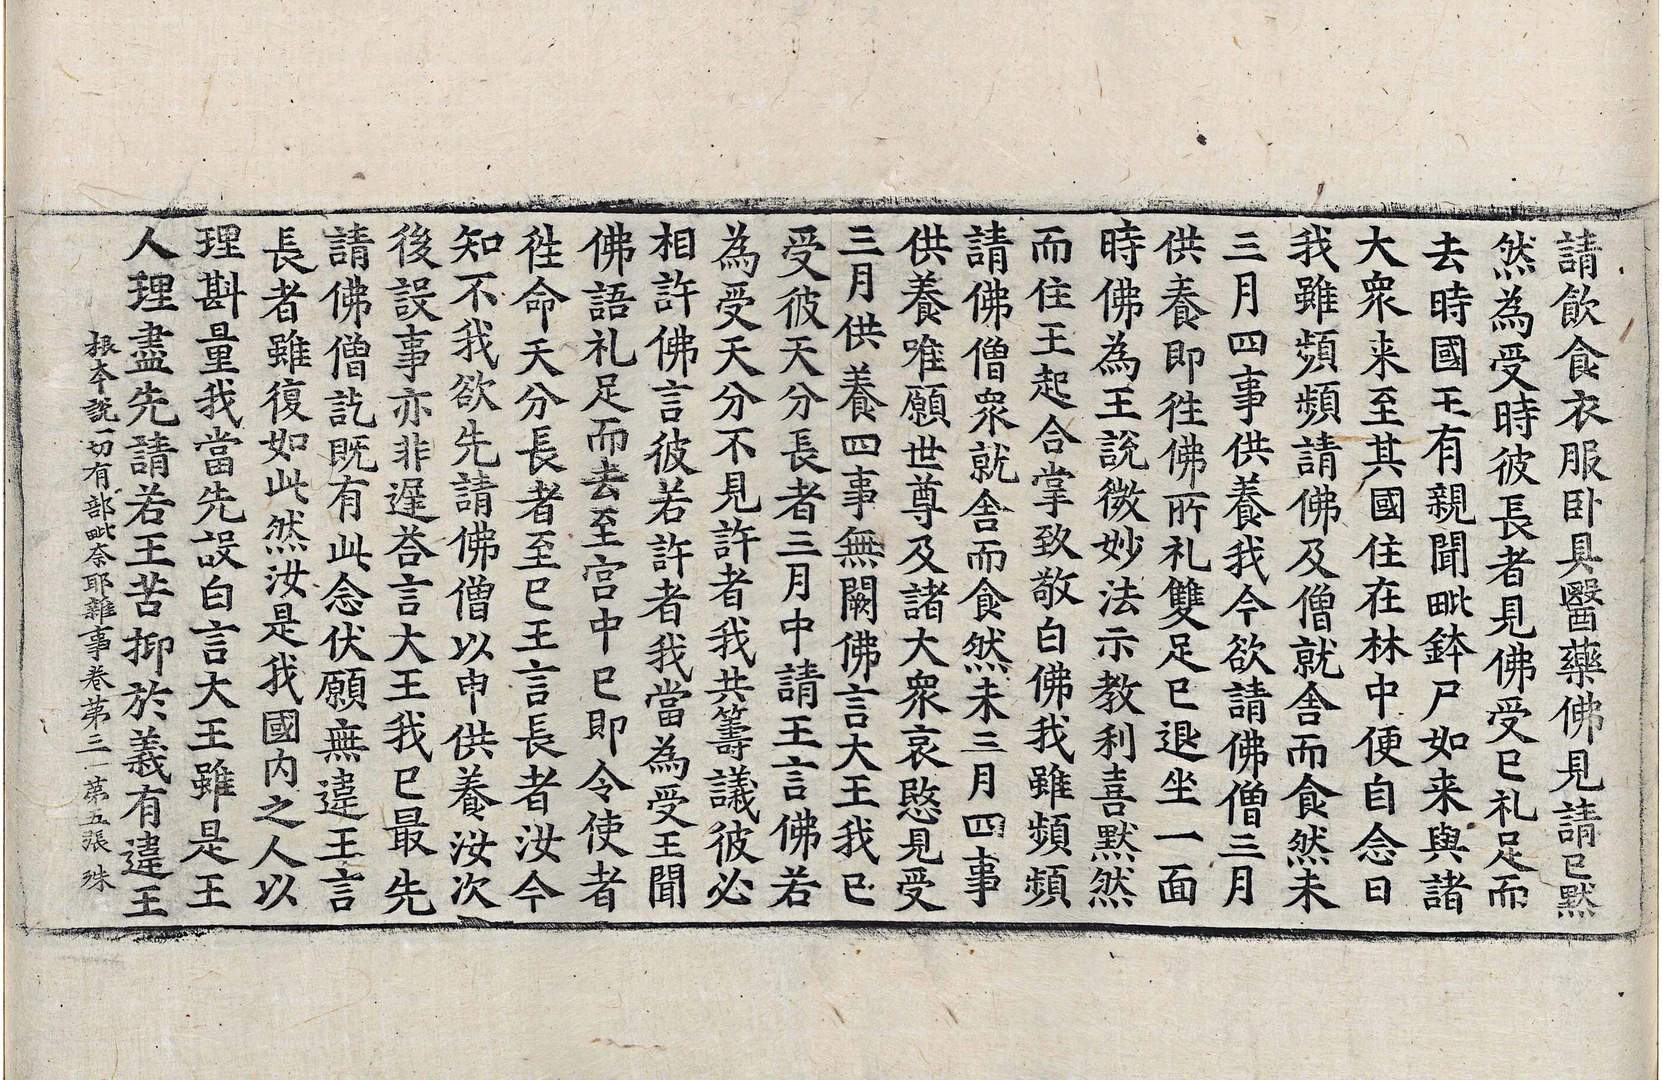 請飮食衣服卧具醫藥佛見請已默
然為受時彼長者見佛受已礼足而
去時國王有親聞毗鉢尸如来與諸
大衆来至其國住在林中便自念曰
我雖頻頻請佛及僧就舍而食然未
三月四事供養我今欲請佛僧三月
供養即徃佛所礼雙足已退坐一面
時佛為王說微妙法示教利喜默然
而住王起合掌致敬白佛我雖頻頻
請佛僧衆就舍而食然未三月四事
供養唯願世尊及諸大衆哀愍見受
三月供養四事無闕佛言大王我已
受彼天分長者三月中請王言佛若
為受天分不見許者我共籌議彼必
相許佛言彼若許者我當為受王聞
佛語礼足而去至宫中已即令使者
徃命天分長者至已王言長者汝今
知不我欲先請佛僧以申供養汝次
後設事亦非遲荅言大王我已最先
請佛僧訖既有此念伏願無違王言
長者雖復如此然汝是我國内之人以
理斟量我當先設白言大王雖是王
人理盡先請若王苦抑於義有違王
根本說一切有部毗奈耶雜事卷第三一 第五張 殊